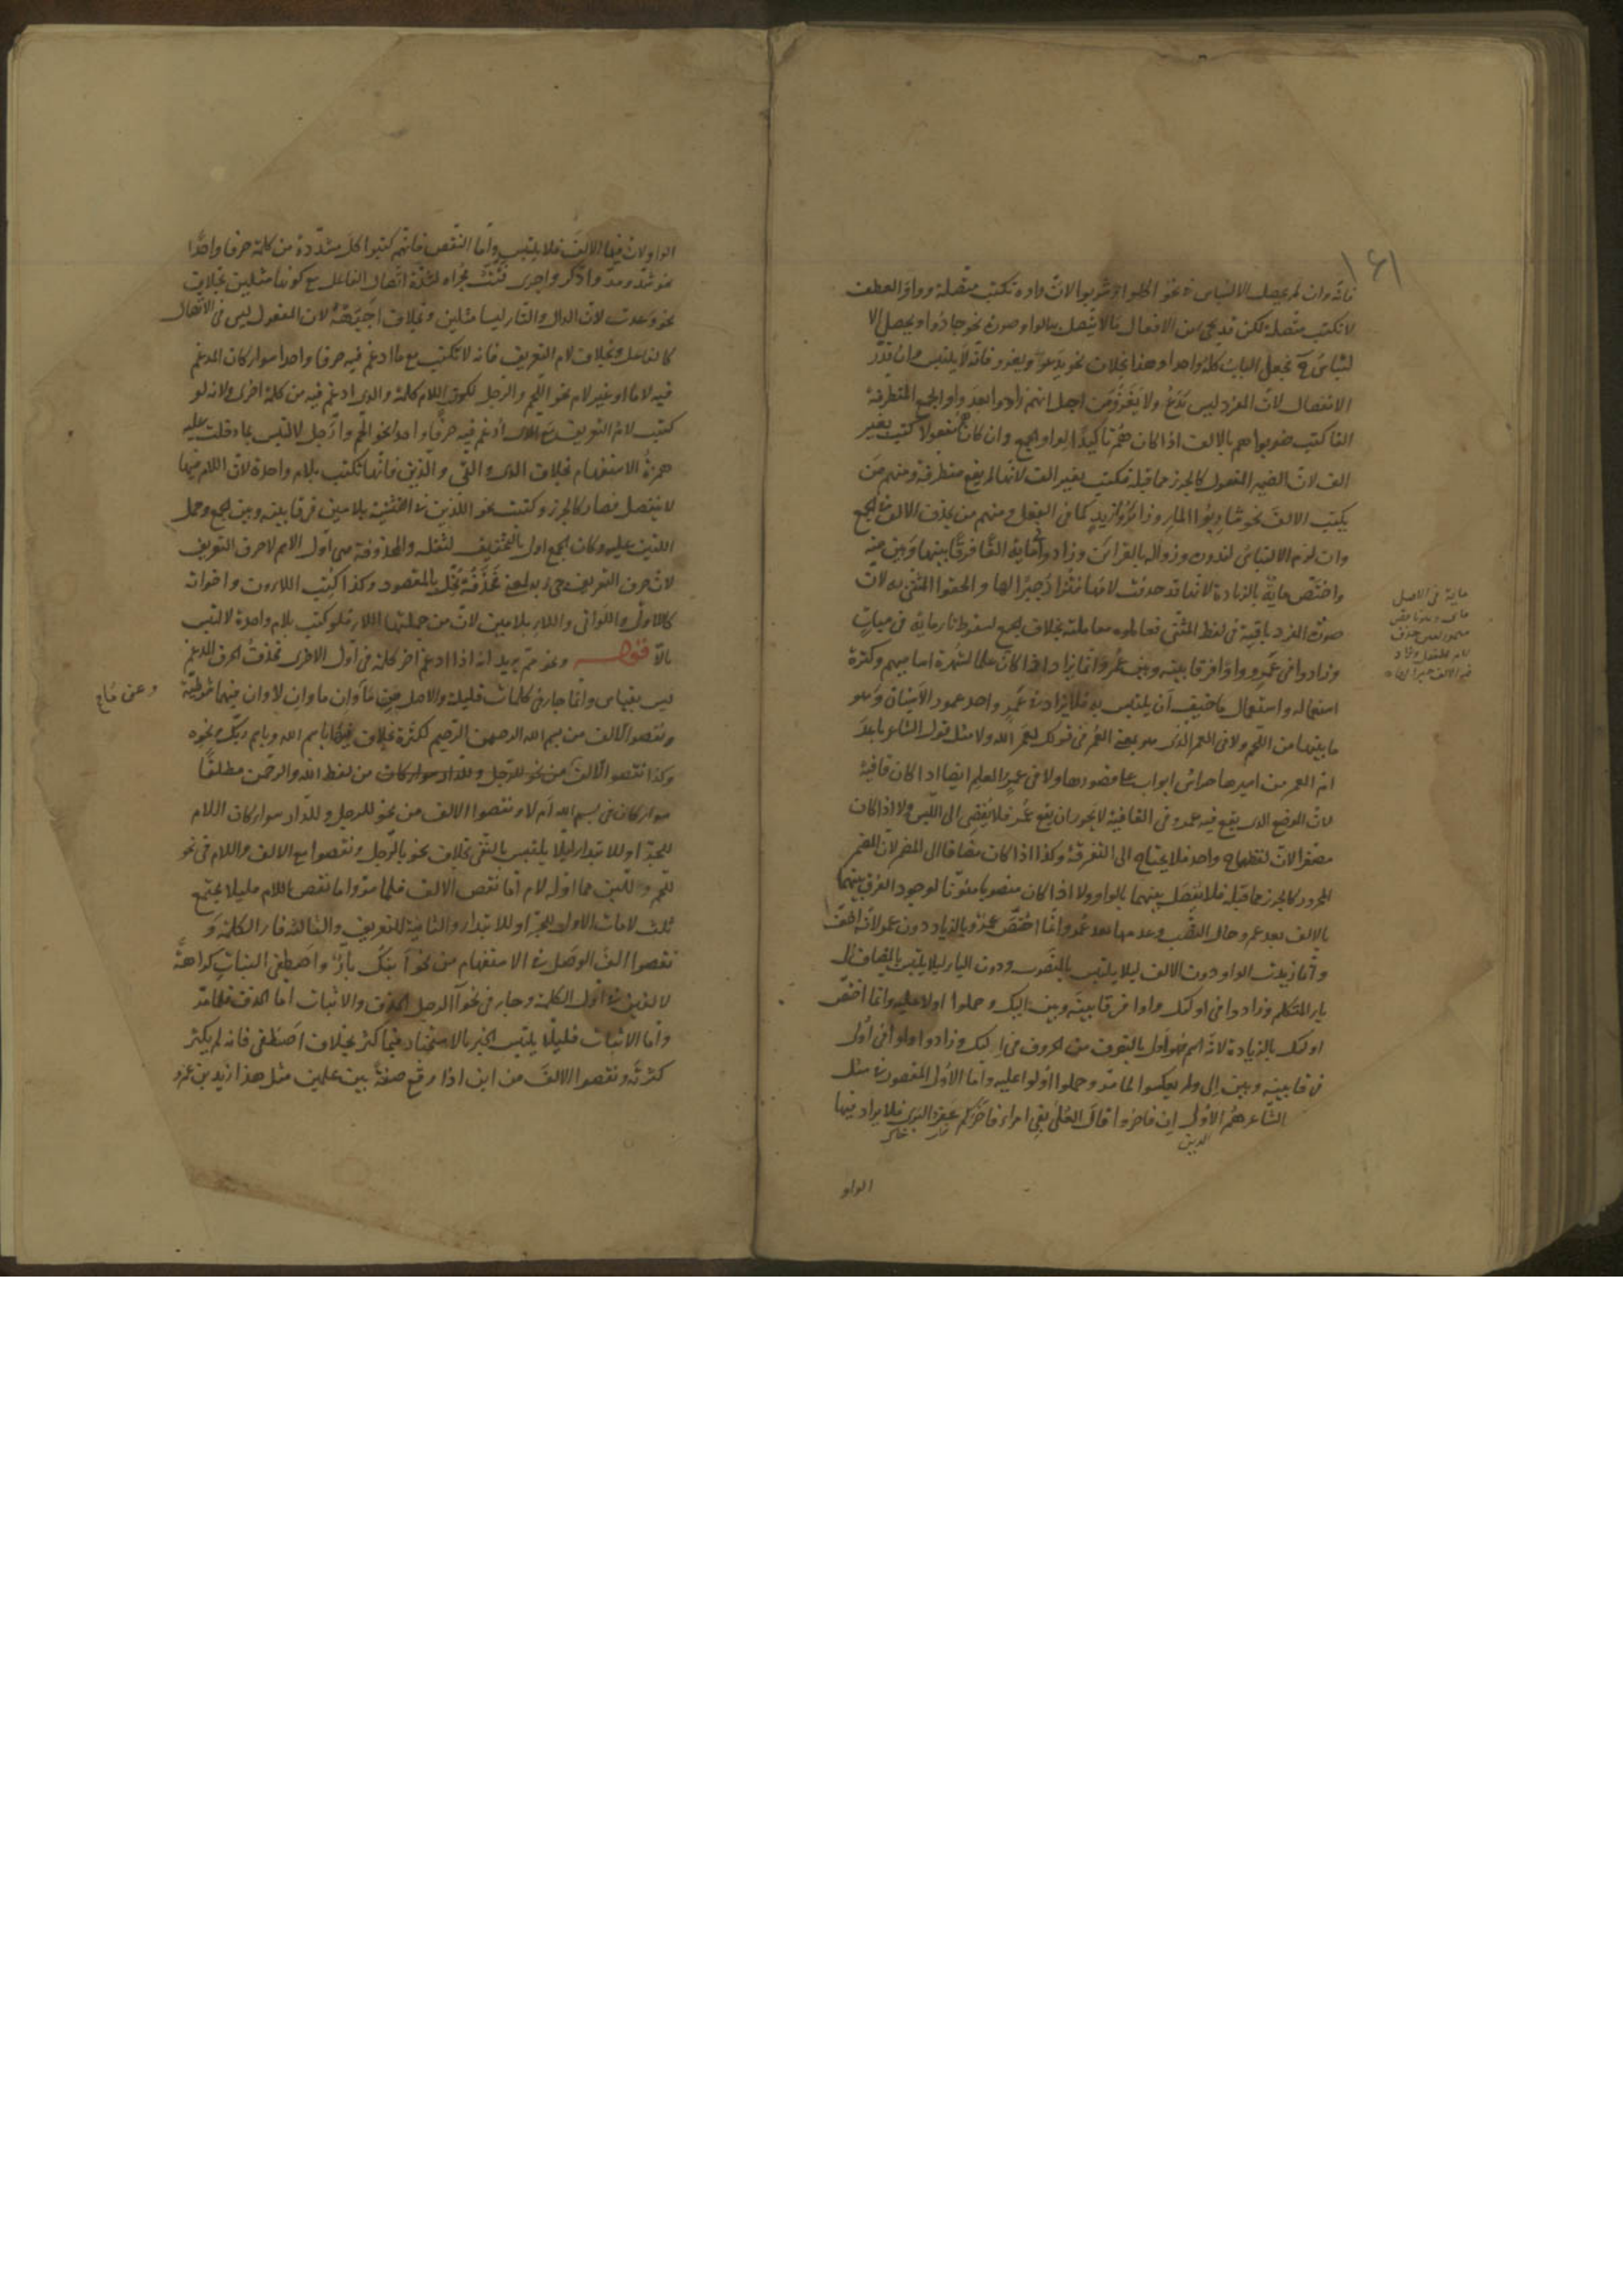 ١٦١
فانه وان لم يحصل الالتباس في نحو اكلوا وشربوا لان واوه تكتب متصلة وواو العطف
لا تكتب متصلة لكن قد يجئ من الافعال مالا يتصل به الواو صورة نحو جادوا ويحصل الا
لتباس فيه فجعل الباب كله واحدا وهذا بخلاف نحو يدعو ويغزو فانه لا يلتبس وان قدر
الانفصال لان المفرد ليس يدع ولا يغز ومن اجل انهم زادوا بعد واو الجمع المتطرفة
الفا كتب ضربوا هم بالالف اذا كان هم تاكيدا لواو الجمع وان كان هم مفعولا كتب بغير
الف لان الضمير المفعول كالجزء مما قبله فكتب بغير الف لانها لم يقع متطرفة ومنهم من
يكتب الالف نحو شاربوا الماء وزائروا زيد كما في الفعل ومنهم من يحذف الالف في الجمع
وان لزم الالتباس لندوره وزواله بالقرائن وزادوا في مائة الفا فرقا بينها وبين منه
واختص مائة بالزيادة لانها قد حذفت لامها فزادوا جبرا لها والحقوا المثنى به لان
صورة المفرد باقية في لفظ المثنى فعاملوه معاملته بخلاف الجمع لسقوط تاء مائة في ميات
وزادوا في عمرو واوا فرقا بينه وبين عمر وانما يزاد اذا كان علما لشهرة اسما بهم وكثرة
استعماله واستعمال ما خيف ان يلتبس به فلا يزاد في عمر واحد عمور الاسنان وهو
ما بينها من اللحم ولا في العمر الذي هو بمعنى العمر في قولك لعمر الله ولا مثل قول الشاعر باعد
ام العمر من اسيرها حراس ابواب على قصورها ولا في عمر العلم ايضا اذا كان قافية
لان الموضع الذي يقع فيه عمرو في القافية لا يجوز ان يقع عمر فلا يفضي الى اللبس ولا اذا كان
مصغرا لان لفظهما واحد فلا يحتاج الى التفرقة وكذا اذا كان مضافا الى المضمر لان المضمر
المجرور كالجزء مما قبله فلا يفصل بينهما بالواو ولا اذا كان منصوبا منونا لوجود الفرق بينهما
بالالف بعد عمرو حال النصب وعدمها بعد عمر وانما اختص عمرو بالزيادة دون عمر لانه اخف
وانما زيدت الواو دون الالف ليلا يلتبس بالمنصوب ودون الياء ليلا يلتبس بالمضاف الى
ياء المتكلم وزادوا في اولئك واوا فرقا بينه وبين اليك وحملوا اولاء عليه وانما اختص
اولئك بالزيادة لانه اسم فهو اولى بالتصرف من الحروف في اليك وزادوا واوا في اولى
فرقا بينه وبين الى ولم يعكسوا لما مر وحملوا اولوا عليه واما الاولى المقصورة مثل
الشاعر هم الاولى ان فاخروا قال العلى بفي امرء فاخركم عفر البرى فلا يزاد فيها
الذين
الواو
ماية في الاصل
الواو لان فيها الالف فلا يلتبس واما النقص فانهم كتبوا كل مشددة من كلمة حرفا واحدا
نحو شد ومد وادكر واجرى قتت مجراه لشدة اتصال الفاعل مع كونها مثلين بخلاف
نحو وعدت لان الدال والتاء ليسا مثلين وبخلاف اجبهه لان المفعول ليس في الاتصال
كالفاعل وبخلاف لام التعريف فانه لا تكتب مع ما ادغم فيه حرفا واحدا سواء كان المدغم
فيه لاما او غير لام نحو اللحم والرجل لكون اللام كلمة والذي ادغم فيه من كلمة اخرى ولانه لو
كتب لام التعريف مع الذي ادغم فيه حرفا واحدا نحو الحم وارجل لالتبس بما دخلت عليه
همزة الاستفهام بخلاف الذي والتي والذين فانها تكتب بلام واحدة لان اللام فيها
لا ينفصل فصار كالجزء وكتبت نحو اللذين في التثنية بلامين فرقا بينه وبين الجمع وحمل
اللتين عليه وكان الجمع اولى بالتخفيف لثقله والمحذوفة هي اول الاسم لا حرف التعريف
لان حرف التعريف جئ به لمعنى فحذفه مخل بالمقصود وكذا كتب اللاءون واخواته
كاللاتي واللواتي واللاء بلامين لان من جملتها اللاء فلو كتب بلام واحدة لالتبس
بالا قوله ونحو عم يريد انه اذا ادغم اخر كلمة في اول الاخرى فحذف الحرف المدغم
ليس بقياس وانما جاء في كلمات قليلة والاصل عن ما وان ما وان لا وان فيهما شرطية
ونقصوا الالف من بسم الله الرحمن الرحيم لكثرته بخلاف باسم الله وباسم ربك ونحوه
وكذا نقصوا الالف من لفظ الله والرحمن مطلقا
سواء كان في بسم الله ام لا ونقصوا الالف من نحو للرجل وللدار سواء كان اللام
للجر او للابتداء ليلا يلتبس بالنفي بخلاف نحو بالرجل ونقصوا مع الالف واللام في نحو
للحم وللبن مما اوله لام اما نقص الالف فلما مر واما نقص اللام فليلا يجتمع
ثلث لامات الاولى للجر او للابتداء والثانية للتعريف والثالثة فاء الكلمة و
نقصوا الف الوصل في الاستفهام من نحو ابنك بار واصطفى البنات كراهة
لالفين في اول الكلمة وجاء في نحو آالرجل الحذف والاثبات اما الحذف فلما مر
واما الاثبات فليلا يلتبس الخبر بالاستخبار فيما كثر بخلاف اصطفى فانه لم يكثر
كثرته ونقصوا الالف من ابن اذا وقع صفة بين علمين مثل هذا زيد بن عمرو